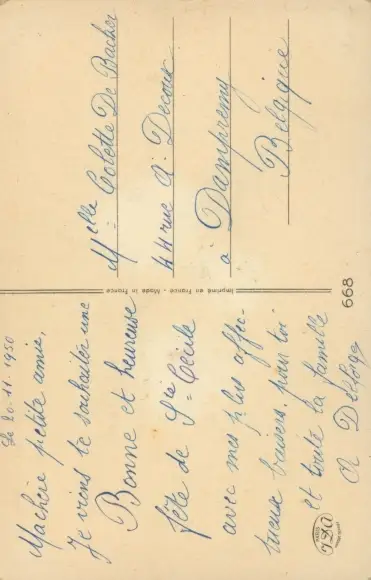 Le 20-11-1950
Ma chère petite amie,
Je viens te souhaiter une
Bonne et heureuse
fête de Ste Cécile
avec mes plus affec-
tueux baisers pour toi
et toute la famille
A Deforge
Imprimé en France - Made in France
668
PARIS
Mlle Colette De Backer
44 rue A. Decoux
à Dampremy
Belgique